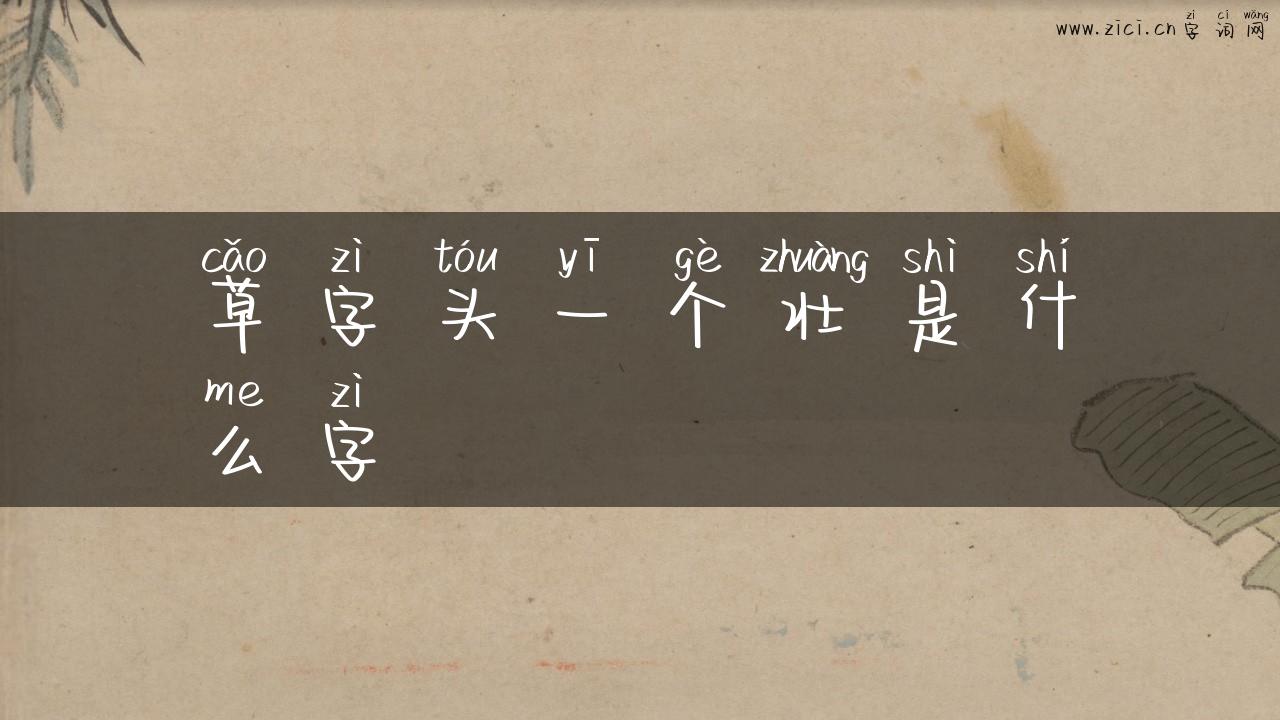 zì cí wǎng
www.zici.cn 字词网
cǎo zì tóu yī gè zhuàng shì shí
草字头一个壮是什
me zì
么字